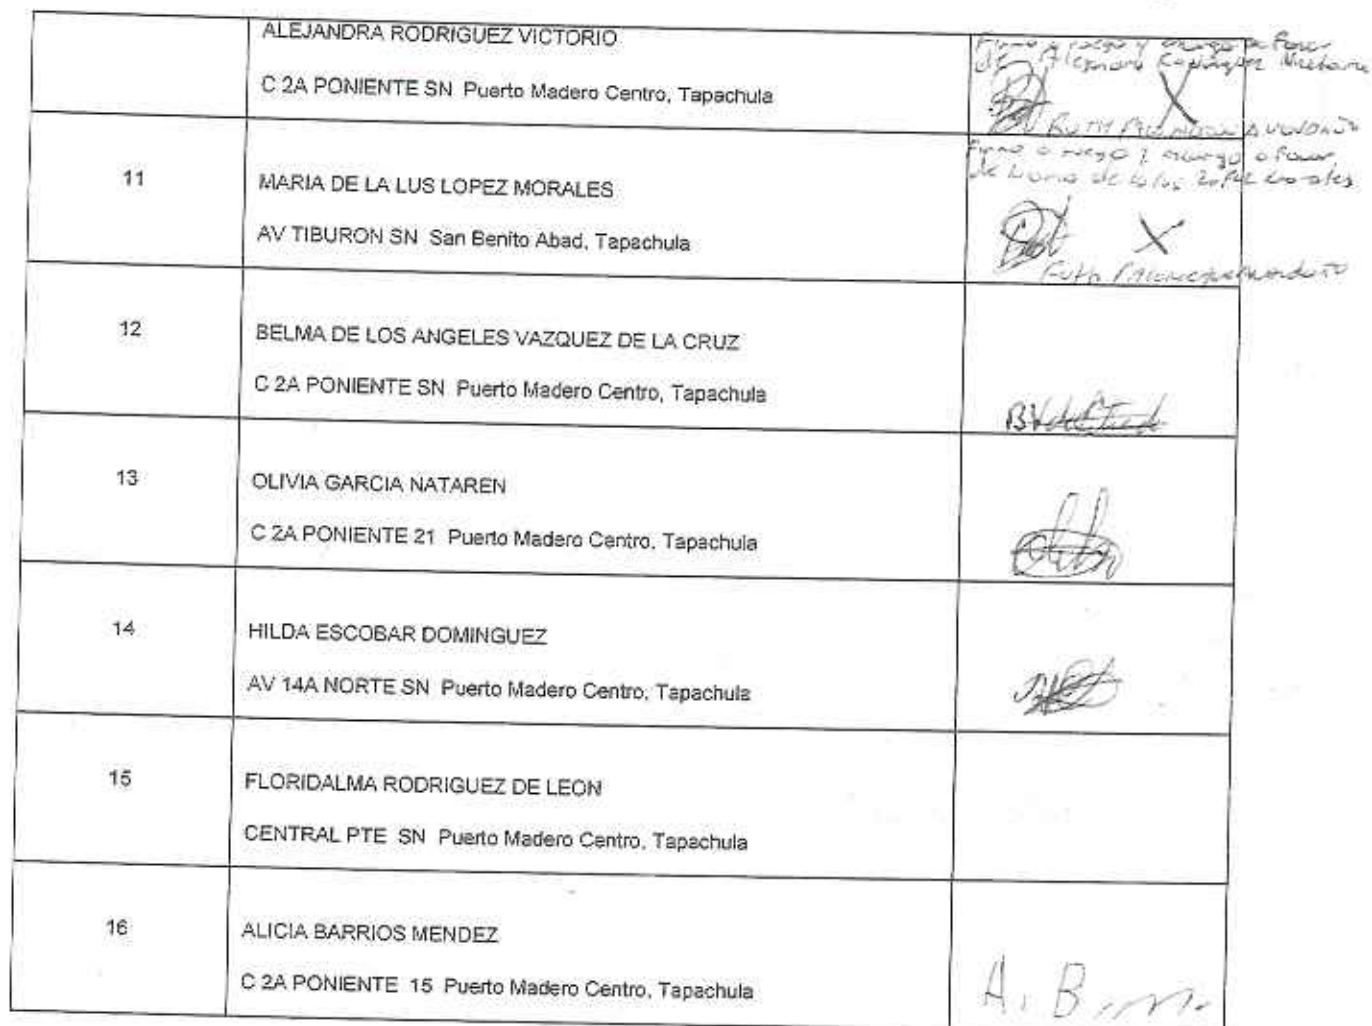 ALEJANDRA RODRIGUEZ VICTORIO
C 2A PONIENTE SN Puerto Madero Centro, Tapachula
Firmo a ruego y encargo a favor
de Alejandra
RUTH
11
MARIA DE LA LUS LOPEZ MORALES
AV TIBURON SN San Benito Abad, Tapachula
Firmo a ruego y encargo a favor
de Maria de la lus Lopez Morales
X
Ruth
12
BELMA DE LOS ANGELES VAZQUEZ DE LA CRUZ
C 2A PONIENTE SN Puerto Madero Centro, Tapachula
13
OLIVIA GARCIA NATAREN
C 2A PONIENTE 21 Puerto Madero Centro, Tapachula
14
HILDA ESCOBAR DOMINGUEZ
AV 14A NORTE SN Puerto Madero Centro, Tapachula
15
FLORIDALMA RODRIGUEZ DE LEON
CENTRAL PTE SN Puerto Madero Centro, Tapachula
16
ALICIA BARRIOS MENDEZ
C 2A PONIENTE 15 Puerto Madero Centro, Tapachula
A. B. m.